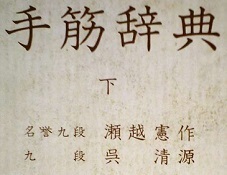 手筋辞典
下
名誉九段 瀬越憲作
九段 呉清源